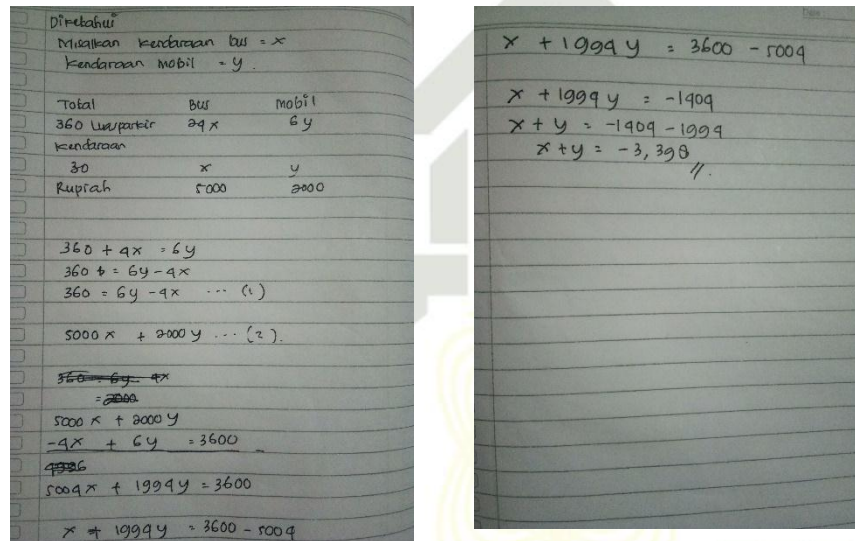 Diketahui
Misalkan kendaraan bus = x
kendaraan mobil = y.
Total Bus mobil
360 Luas parkir 24x 6y
kendaraan
30 x y
Rupiah 5000 2000
360 + 4x = 6y
360 = 6y - 4x
360 = 6y - 4x ... (1)
5000 x + 2000 y ... (2).
360 = 6y 4x
= 2000
5000 x + 2000 y
-4x + 6y = 3600 -
5004x + 1994y = 3600
x + 1994y = 3600 - 5004
x + 1994 y = 3600 - 5004
x + 1994 y = -1404
x + y = -1404 - 1994
x + y = -3,398
//.